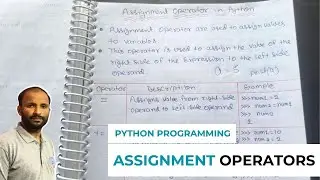 Assignment Operator in Python
Assignment Operator are used to assign values
to variables
This operator is used to assign the value of the
right side of the expression to the left side
operand
a = 5
Operator Description Example
= Assigns value from right side
operand to left side operand
>>> num1 = 2
>>> num2 = num1
>>> num2
2
>>> num1 = 10
>>> num2 = 2
PYTHON PROGRAMMING
ASSIGNMENT OPERATORS